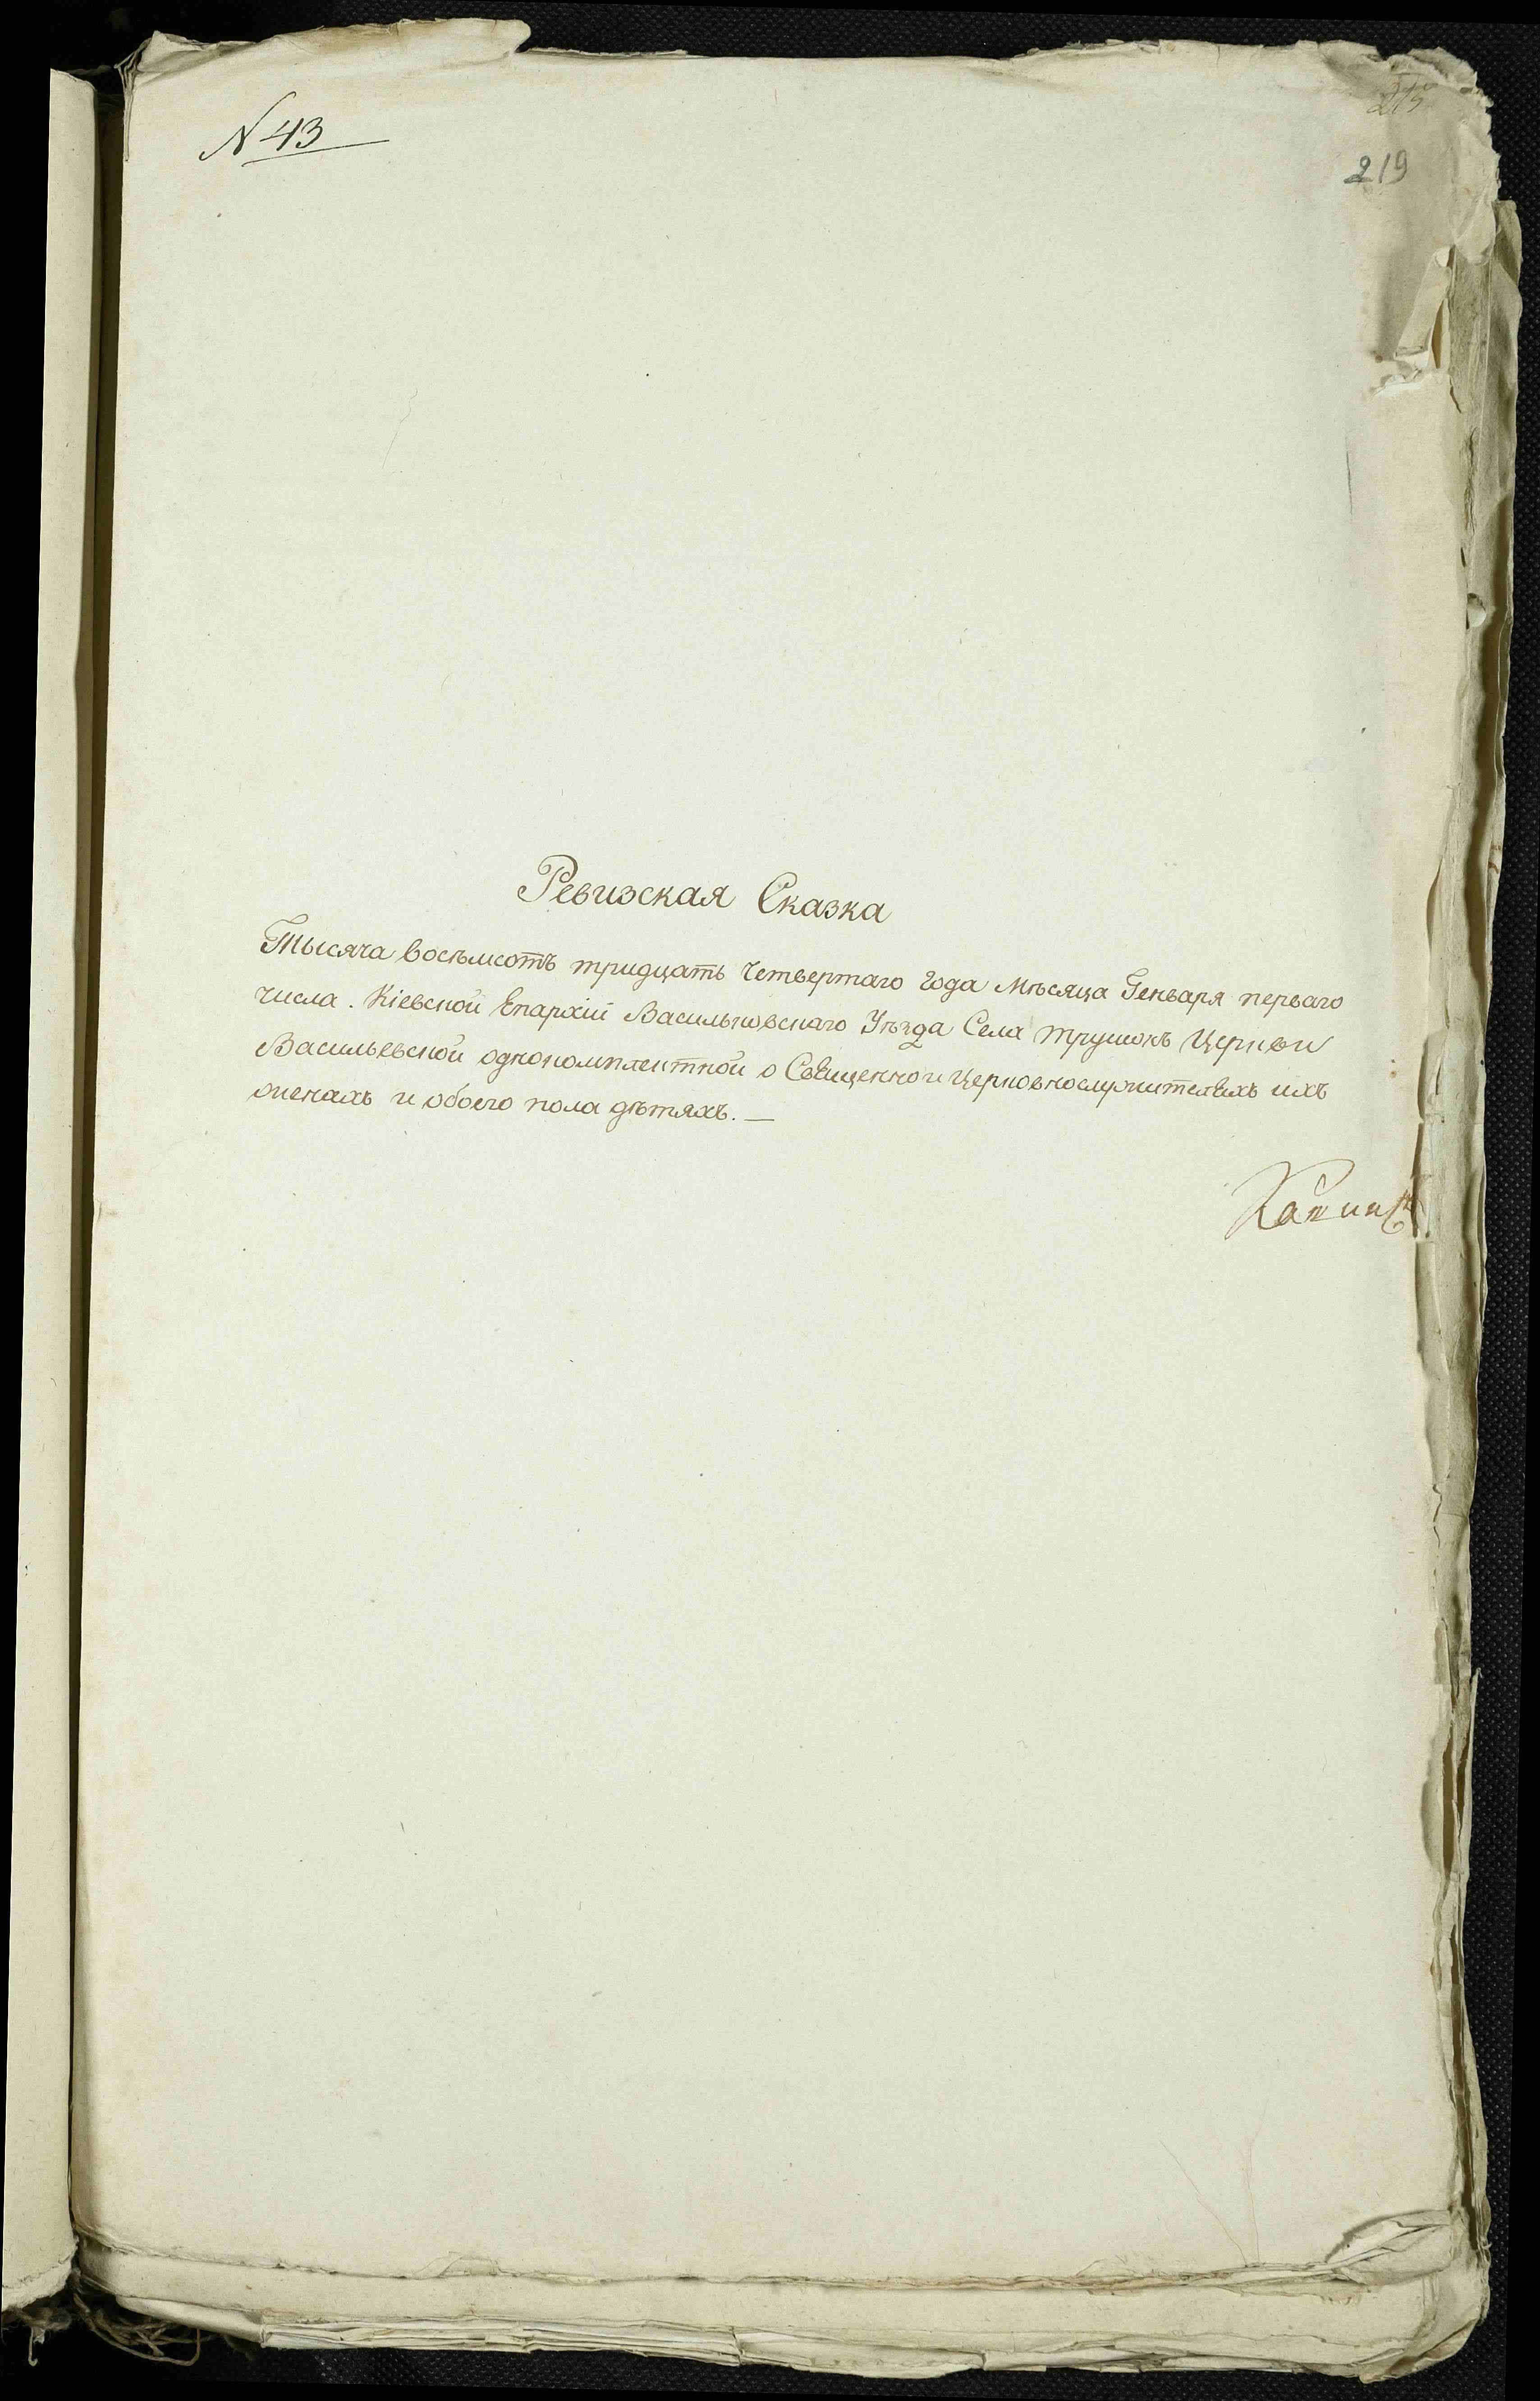 N 43
219
Ревизская Сказка
Тысяча восъмсотъ тридцать четвертаго года Мѣсяца Генваря перваго
числа. Кіевской Епархіи Васильковскаго Уѣзда Села Трушокъ Церкви
Васильевской однокомплектной о Священно и Церковнослужителяхъ ихъ
женахъ и обоего пола дѣтяхъ. —